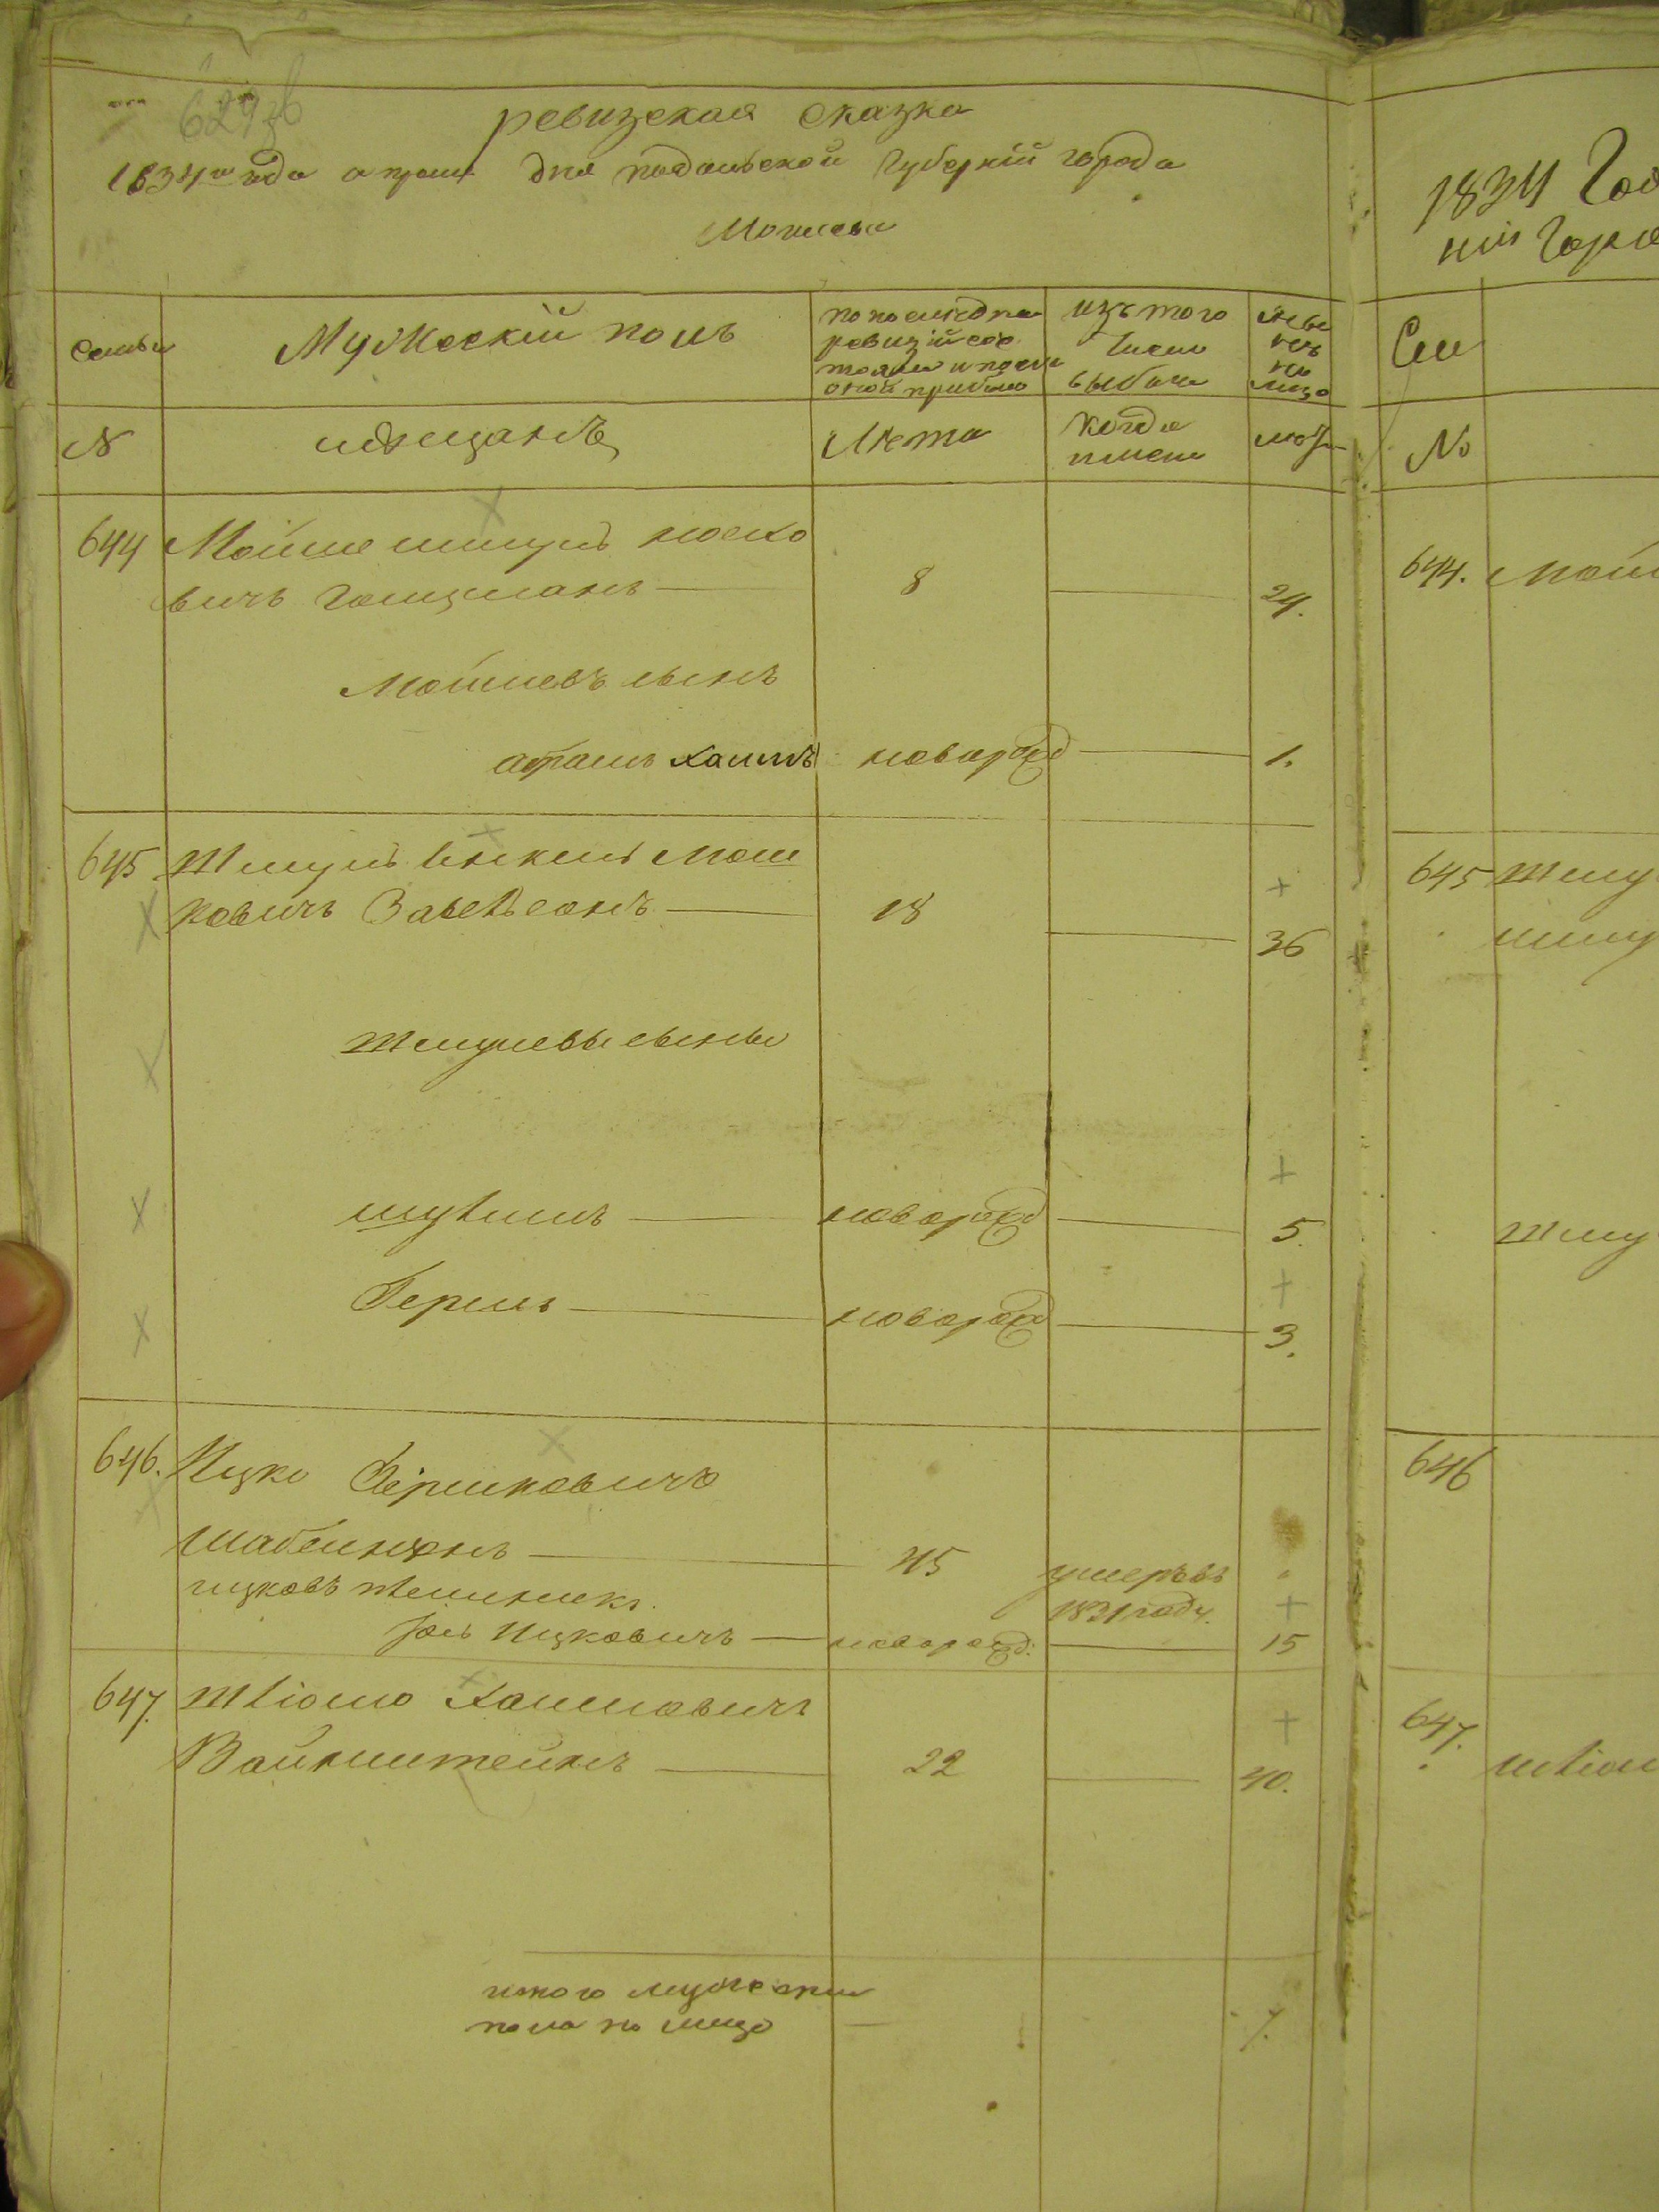 ревизская сказка
1834го года апреля дня подольской Губернiи города
Могилева
семьи
Мужескiй полъ
по последней
ревизiи сос
тояло и после
оной прибыло
изъ того
числа
выбыло
ныне
на
лицо
№
мещанъ
Лета
когда
именно
лета
644
Мойше шмуль иоско
вичъ Голцманъ
8
24.
Мошковъ сынъ
Хаимъ
новорожд
1.
645
Шмуль
Мош
ковичъ
18
36
Шмулевы сыны
новорожд
5.
Гершъ
новорожд
3.
646.
Ицко Гершковичъ
45
умеръ въ
1831 году.
ицковъ племеникъ
Ицковичъ
новорожд:
15
647.
Шлiомо Хаимовичъ
Вайнштейнъ
22
40.
итого мужеска
пола на лицо
7.
1834 Год
нiи Горо
Сем
№
644.
Мой
645
Шму
Шму
646
647.